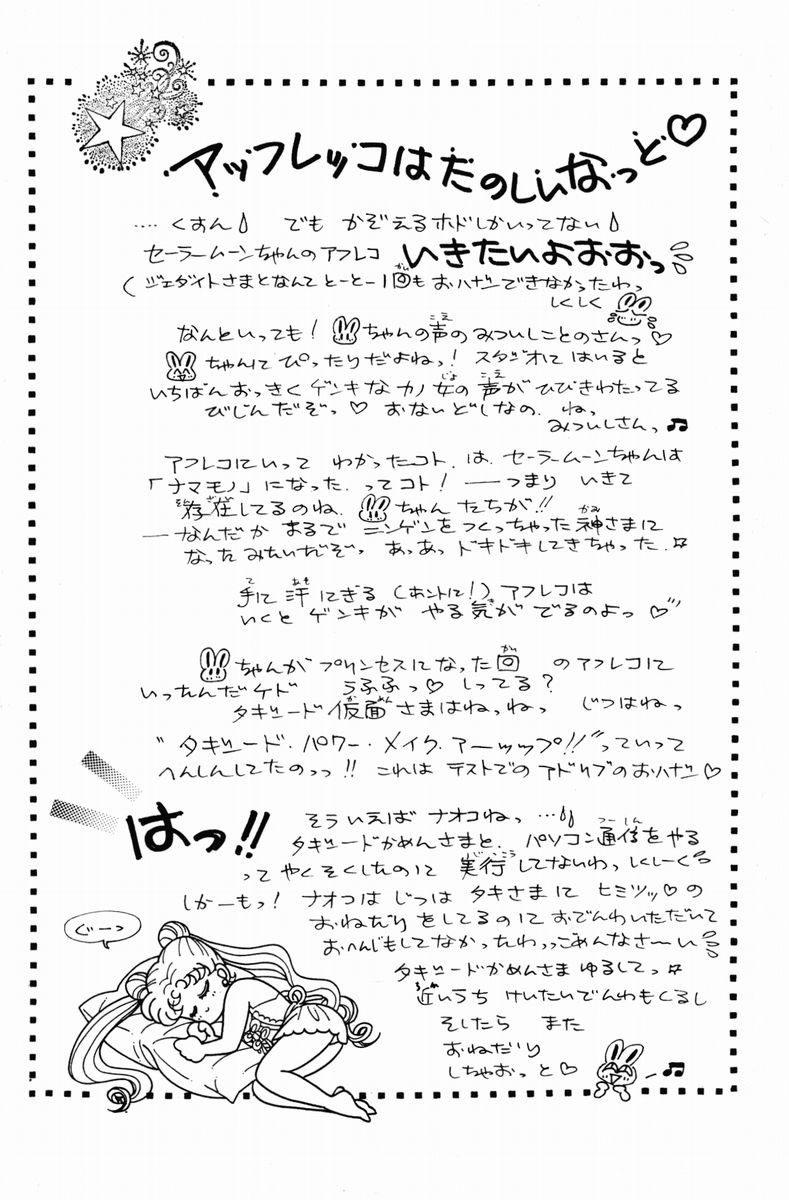 アッフレッコはたのしいなっと♡
‥‥くすん でも かぞえるホドしかいってない
セーラームーンちゃんのアフレコ いきたいよおおっ
(ジェダイトさまとなんて とーとー1回もおハナシできなかったわっ
しくしく
なんといっても! ちゃんの声のみついしことのさんっ♡
ちゃんにぴったりだよねっ! スタジオにはいると
いちばんおっきくゲンキなカノ女の声がひびきわたってる
びじんだぞっ♡ おないどしなの. ねっ
みついしさんっ♫
アフレコにいって わかったコト. は. セーラームーンちゃんは
「ナマモノ」になった. ってコト! ——つまり いきて
存在してるのね. ちゃんたちが!!
—なんだか まるで ニンゲンをつくっちゃった神さまに
なったみたいだぞっ あっあっ ドキドキしてきちゃった.☆
手に汗にぎる (ホントに!) アフレコは
いくと ゲンキが やる気が でるのよっ ♡
ちゃんが プリンセスになった回 のアフレコに
いったんだケド うふふっ♡ しってる?
タキシード仮面さまはねっねっ じつはねっ
"タキシード・パワー・メイク・アーップ!!"っていって
へんしんしてたのっっ!! これは テストでのアドリブのおハナシ♡
はっ!!
そういえば ナオコねっ …
タキシードかめんさまと. パソコン通信をやる
ってやくそくしたのに 実行してないわっしくしーく
しかーもっ! ナオコは じつは タキさまに ヒミツッ♡の
おねだりをしてるのに おでんわいただいて
おへんじもしてなかったわっっごめんなさ〜い
タキシードかめんさま ゆるしてっ☆
近いうち けいたいでんわもくるし
そしたら また
おねだり
しちゃおっと♡
ぐーっ